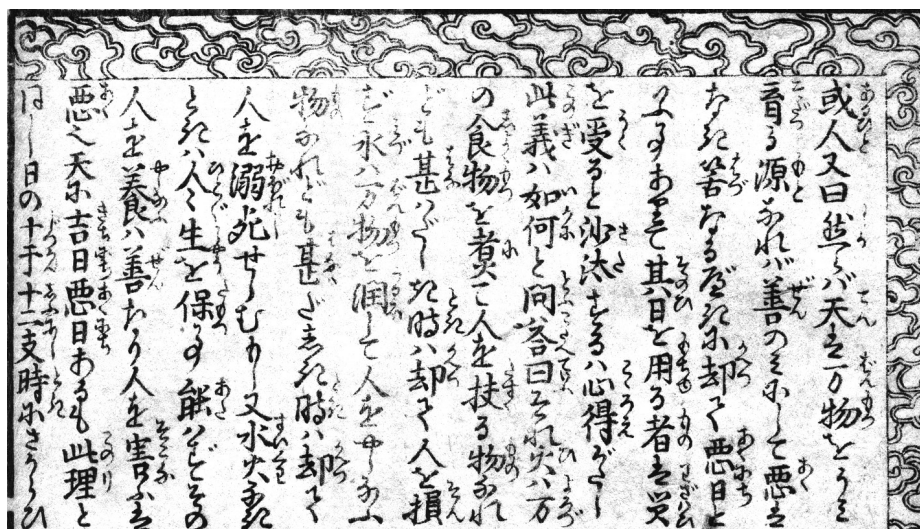 或人又曰然らバ天ハ万物をうミ
育る源なれバ善のミにして悪ハ
なき筈なる儀に却て悪日と
いふ事ありて其日を用る者ハ災
を受ると沙汰するハ心得がたし
此義ハ如何と問答曰それ火ハ万
の食物を煮て人を扶る物なれ
ども甚ハだしき時ハ却て人を損
ず水ハ万物を潤して人をやしなふ
物なれども甚だしき時ハ却て
人を溺死せしむもし又水火なき
ときハ人々生を保つ事能ハずその
人を養ハ善なり人を害ふハ
悪也天に吉日悪日あるも此理と
同じ日の十干十二支時にさからひ